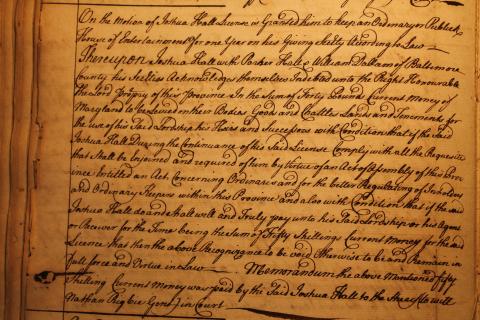 On the Motion of Joshua Hall License is Granted him to keep an Ordinary or Publick
House of Entertainment for one Year on his Giving Secty Acording to Law
Thereupon Joshua Hall with Parker Hall & William Dallam of Baltimore
County his Secties Acknowledges themselves Indebted unto the Right Honourable
the Lord Propry of this Province In the Sum of Forty Pounds Current money of
Maryland to be Levied on their Bodies Goods and Chattles Lands and Tenements for
the use of his Said Lordship his Heirs and Successors with Condition that if the Said
Joshua Hall During the Continuance of his Said License Comply with all the Requisites
that Shall be Injoined and required of him by Virtue of an Act of Assembly of this Prov
ince Intitled an Act Concerning Ordinarys and for the better Regulating of Inholders
and Ordinary Keepers within this Province and also with Condition that if the said
Joshua Hall do and shall well and Truly pay unto his Said Lordship or his Agent
or Receiver for the Time being the Sum of Fifty Shillings Current Money for the said
Licence that then the above Recognizance to be void otherwise to be and Remain in
full force and Virtue in Law Memorandum the above Mentioned fifty
Shilling Current Money was paid by the Said Joshua Hall to the
Nathan Rigbie Gent) in Court